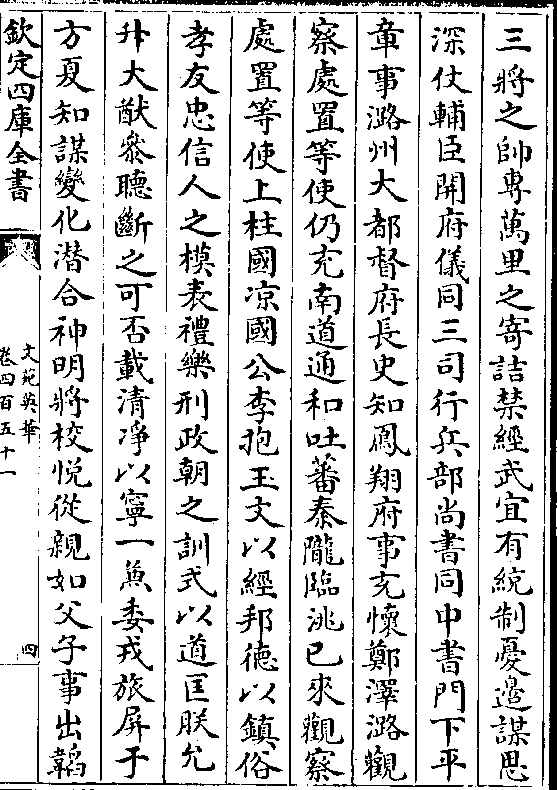 三將之帥專萬里之寄詰禁經武宜有統制憂邉謀思
深仗輔臣開府儀同三司行兵部尚書同中書門下平
章事潞州大都督府長史知鳳翔府事充懷鄭澤潞觀
察處置等使仍充南道通和吐蕃秦隴臨洮已來觀察
處置等使上柱國凉國公李抱玉文以經邦德以鎮俗
孝友忠信人之模表禮樂刑政朝之訓式以道匡朕允
升大猷叅聽斷之可否載清凈以寧一兼委戎旅屏于
方夏知謀變化潛合神明將校悅從親如父子事出韜
欽定四庫全書
文苑英華
卷四百五十一
四